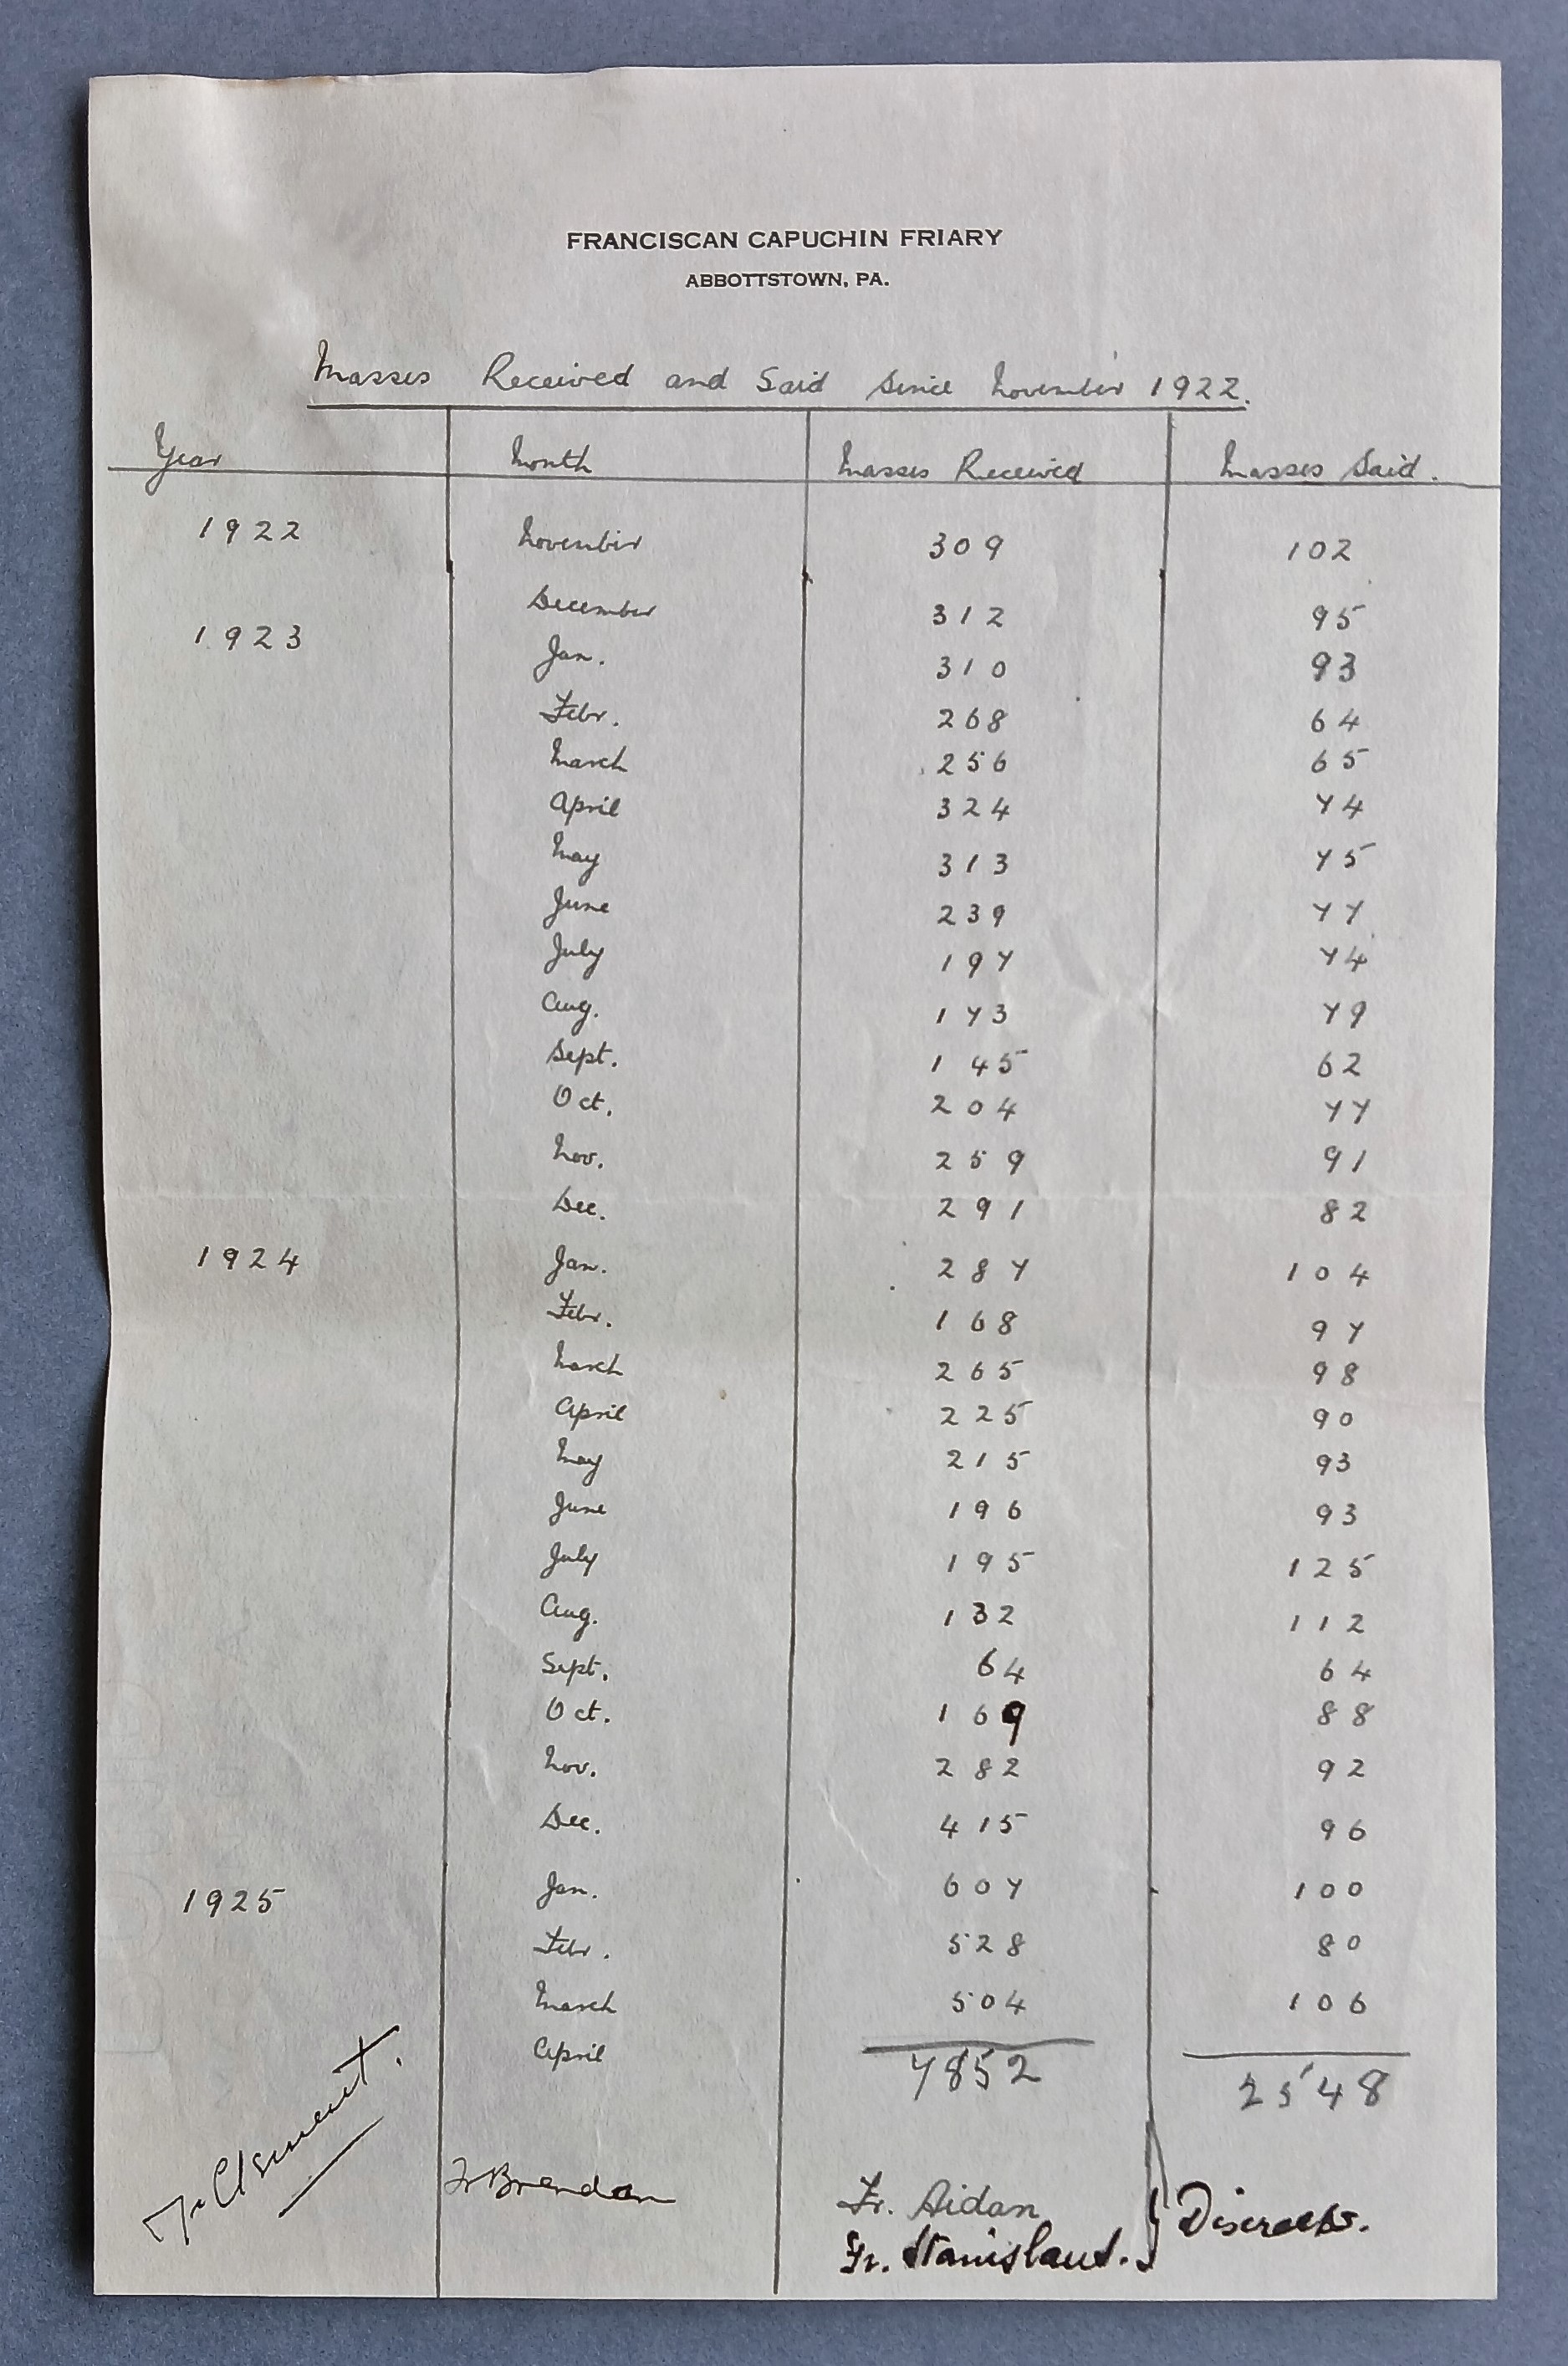 FRANCISCAN CAPUCHIN FRIARY
ABBOTTSTOWN, PA.
Masses Received and Said Since November 1922.
Year Month Masses Received Masses Said.
1922 November 309 102
December 312 95
1923 Jan. 310 93
Febr. 268 64
March 256 65
April 324 74
May 313 75
June 239 77
July 197 74
Aug. 173 79
Sept. 145 62
Oct. 204 77
Nov. 259 91
Dec. 291 82
1924 Jan. 287 104
Febr. 168 97
March 265 98
April 225 90
May 215 93
June 196 93
July 195 125
Aug. 132 112
Sept. 64 64
Oct. 169 88
Nov. 282 92
Dec. 415 96
1925 Jan. 607 100
Febr. 528 80
March 504 106
April 7852 2548
Fr Clement.
Fr Brendan
Fr. Aidan
Fr. Stanislaus. } Discreets.